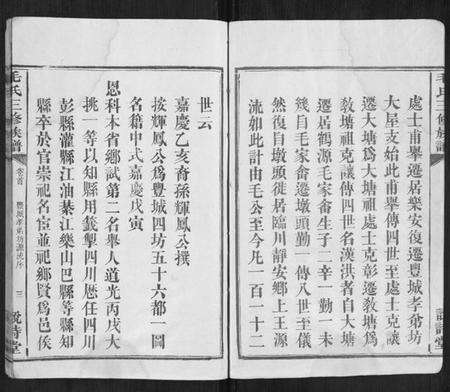 毛氏三修族譜
處士甫舉遷居樂安復遷豐城孝弟坊
大屋支始此甫舉傳四世至處士克讓
遷大塘爲大塘祖處士克彰遷敎塘爲
敎塘祖克讓傳四世名漢洪者自大塘
遷居鶴源毛家畬生子二幸一勤一未
幾自毛家畬遷墩頭勤一傳八世至儀
然復自墩頭徙居臨川靜安鄉上王源
流如此計由毛公至今凡一百一十二
說詩堂
世云
嘉慶乙亥裔孫輝鳳公撰
按輝鳳公爲豐城四坊五十六都一圖
名籍中式嘉慶戊寅
恩科本省鄉試第二名舉人道光丙戌大
挑一等以知縣用籤掣四川歷任四川
彭縣灌縣江油綦江樂山巴縣等縣知
縣卒於官崇祀名宦並祀鄉賢爲邑侯
毛氏三修族譜
卷首
豐城孝弟坊源流序
三
說詩堂